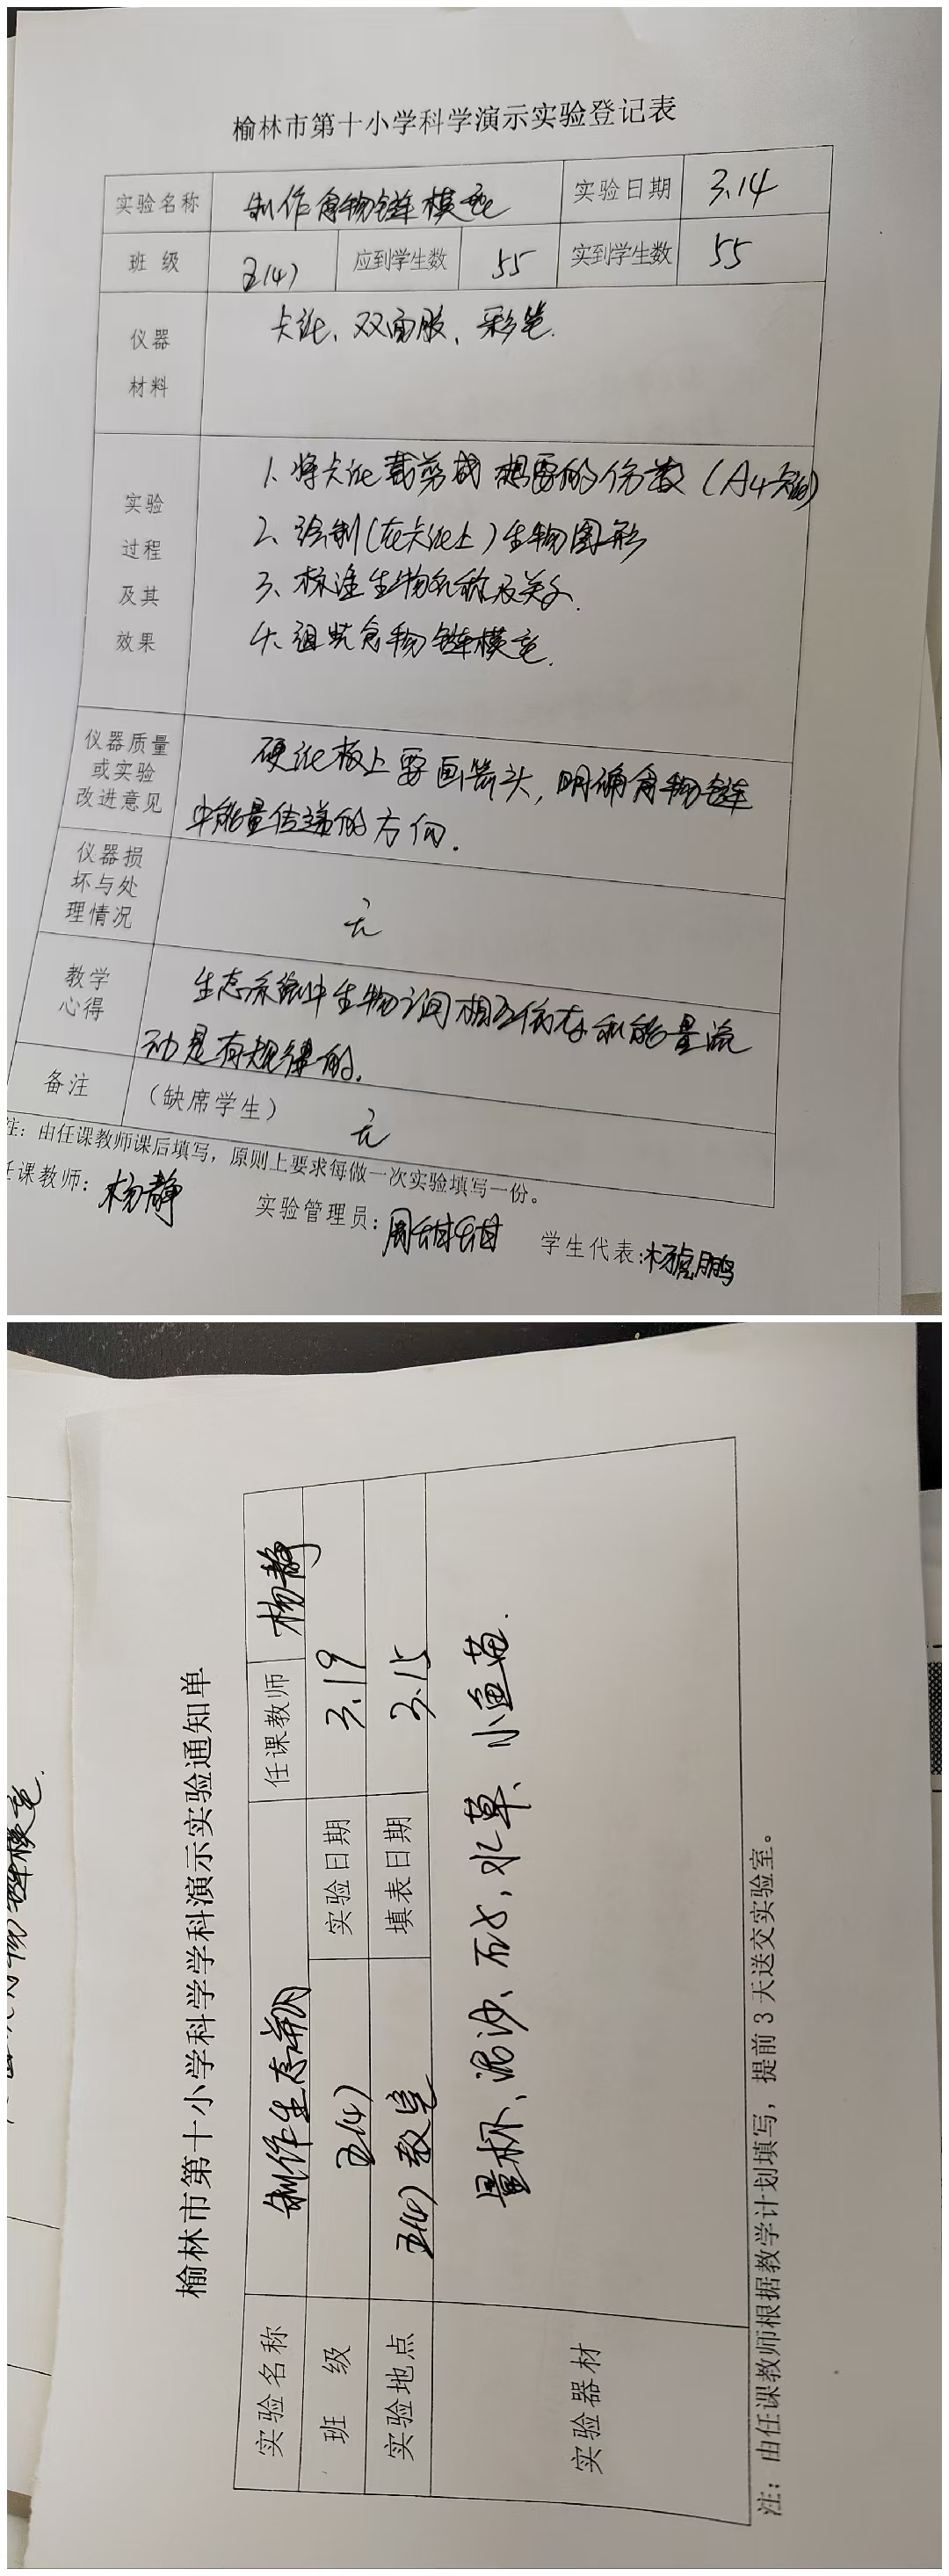 榆林市第十小学科学演示实验登记表
实验名称 制作食物链模型 实验日期 3.14
班 级 五(4) 应到学生数 55 实到学生数 55
仪器
材料
卡纸、双面胶、彩笔.
实验
过程
及其
效果
1、将卡纸裁剪成想要的份数(A4卡纸)
2、绘制(在卡纸上)生物图形
3、标注生物名称及关系.
4、组装食物链模型.
仪器质量
或实验
改进意见
硬纸板上要画箭头,明确食物链
中能量传递的方向.
仪器损
坏与处
理情况
无
教学
心得
生态系统中生物之间相互依存和能量流
动是有规律的.
备注 (缺席学生) 无
注:由任课教师课后填写,原则上要求每做一次实验填写一份。
任课教师:杨静 实验管理员:周甜甜 学生代表:杨虎鹏
榆林市第十小学科学学科演示实验通知单
实验名称 制作生态瓶 任课教师 杨静
班 级 五(4) 实验日期 3.19
实验地点 五(4)教室 填表日期 3.15
实验器材 量杯、泥沙、石子,水草、小鱼苗.
注:由任课教师根据教学计划填写,提前3天送交实验室。